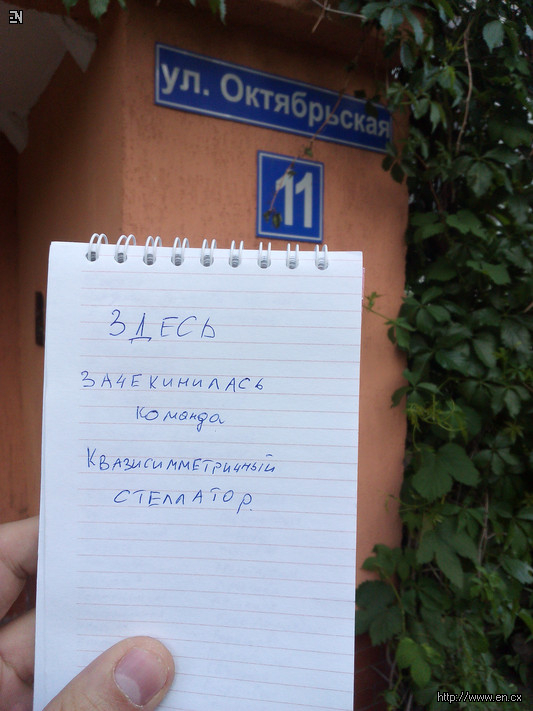 EN
ул. Октябрьская
11
ЗДЕСЬ
ЗАЧЕКИНИЛАСЬ
команда
КВАЗИСИММЕТРИЧНЫЙ
СТЕЛЛАТОР.
http://www.en.cx